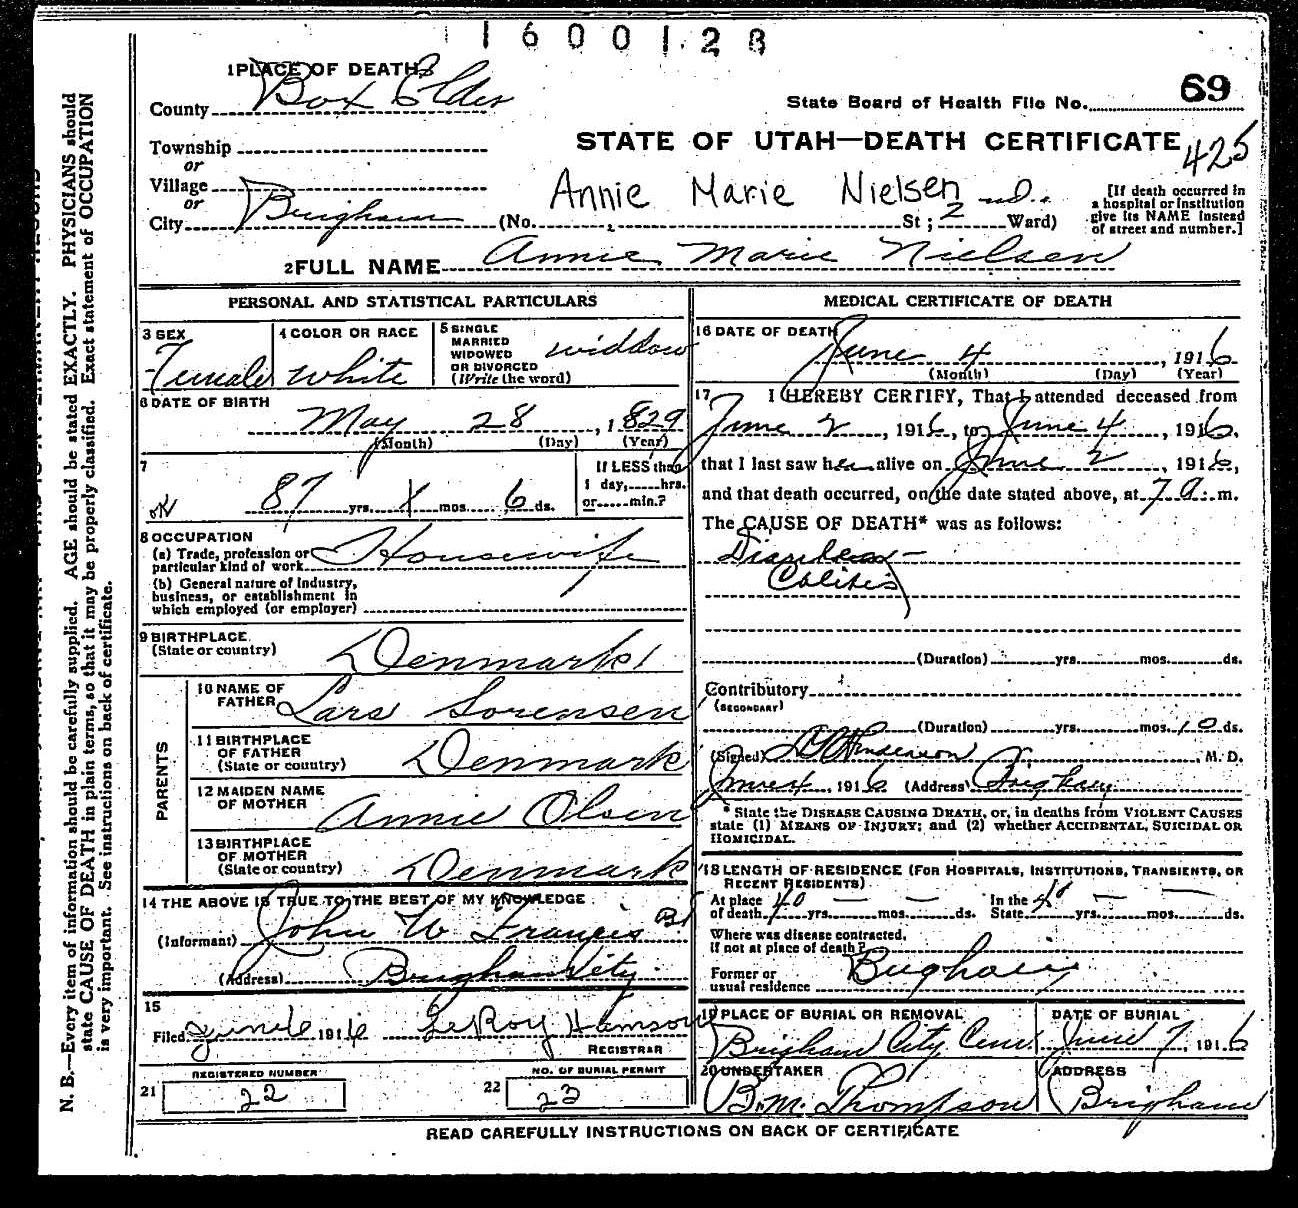 1600128
1 PLACE OF DEATH
County Box Elder
State Board of Health File No. 69
STATE OF UTAH—DEATH CERTIFICATE
425
Township
or
Village
or
City Brigham (No. St; 2nd. Ward)
Annie Marie Nielsen
[If death occurred in
a hospital or institution
give its NAME instead
of street and number.]
2 FULL NAME Annie Marie Nielsen
PERSONAL AND STATISTICAL PARTICULARS
3 SEX Female
4 COLOR OR RACE white
5 SINGLE
MARRIED
WIDOWED
OR DIVORCED
(Write the word) widdow
6 DATE OF BIRTH
May 28, 1829
(Month) (Day) (Year)
7
OK 87 yrs. 1 mos. 6 ds.
If LESS than
1 day, hrs.
or min.?
8 OCCUPATION
(a) Trade, profession or
particular kind of work Housewife
(b) General nature of Industry,
business, or establishment in
which employed (or employer)
9 BIRTHPLACE
(State or country) Denmark
PARENTS
10 NAME OF
FATHER Lars Sorensen
11 BIRTHPLACE
OF FATHER
(State or country) Denmark
12 MAIDEN NAME
OF MOTHER Annie Olsen
13 BIRTHPLACE
OF MOTHER
(State or country) Denmark
14 THE ABOVE IS TRUE TO THE BEST OF MY KNOWLEDGE
(Informant) John W Francis
(Address) Brigham City.
15
Filed June 6 1916 LeRoy Hamson
REGISTRAR
21 REGISTERED NUMBER
22
22 NO. OF BURIAL PERMIT
23
MEDICAL CERTIFICATE OF DEATH
16 DATE OF DEATH
June 4, 1916
(Month) (Day) (Year)
17 I HEREBY CERTIFY, That I attended deceased from
June 2, 1916, to June 4, 1916,
that I last saw her alive on June 2, 1916,
and that death occurred, on the date stated above, at 7 a. m.
The CAUSE OF DEATH* was as follows:
Diarrhea -
Colitis
(Duration) yrs. mos. ds.
Contributory
(SECONDARY)
(Duration) yrs. mos. 10 ds.
(Signed) Henderson, M. D.
June 4, 1916 (Address) Brigham
* State the DISEASE CAUSING DEATH, or, in deaths from VIOLENT CAUSES
state (1) MEANS OF INJURY; and (2) whether ACCIDENTAL, SUICIDAL OR
HOMICIDAL.
18 LENGTH OF RESIDENCE (FOR HOSPITALS, INSTITUTIONS, TRANSIENTS, OR
RECENT RESIDENTS)
At place
of death 40 yrs. — mos. — ds. In the
State yrs. — mos. — ds.
Where was disease contracted,
If not at place of death?
Former or
usual residence Brigham
19 PLACE OF BURIAL OR REMOVAL
Brigham City Cem.
DATE OF BURIAL
June 7, 1916
20 UNDERTAKER
B.M. Thompson
ADDRESS
Brigham
READ CAREFULLY INSTRUCTIONS ON BACK OF CERTIFICATE
N. B.—Every item of information should be carefully supplied. AGE should be stated EXACTLY. PHYSICIANS should
state CAUSE OF DEATH in plain terms, so that it may be properly classified. Exact statement of OCCUPATION
is very important. See instructions on back of certificate.